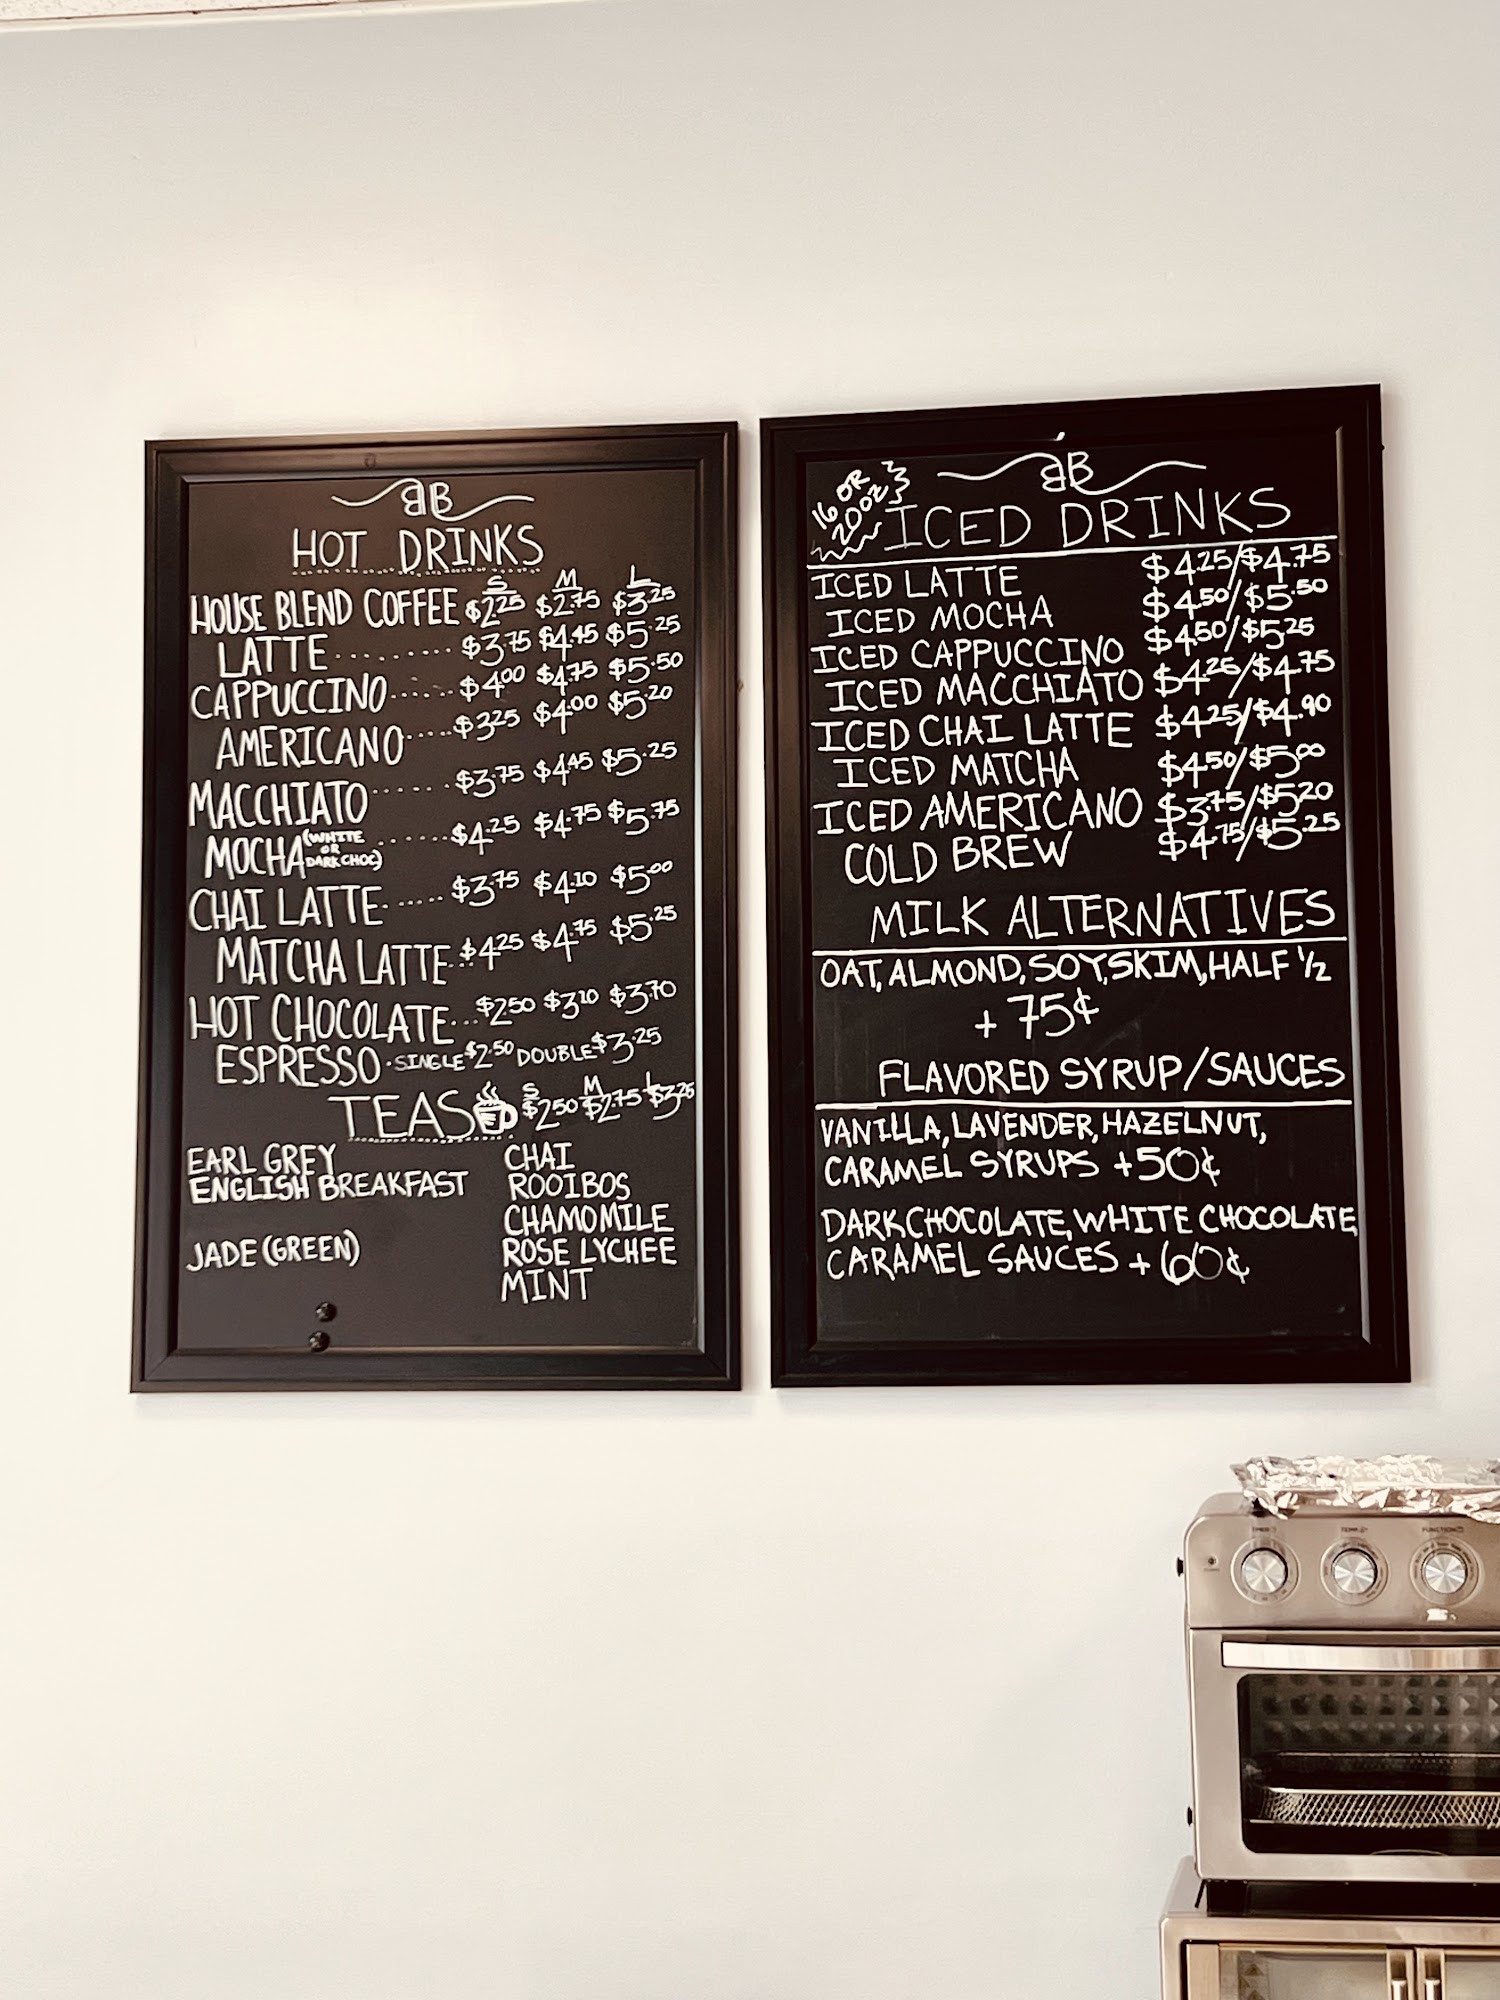 BB
HOT DRINKS
S M L
HOUSE BLEND COFFEE $2.25 $2.75 $3.25
LATTE......... $3.75 $4.45 $5.25
CAPPUCCINO...... $4.00 $4.75 $5.50
AMERICANO..... $3.25 $4.00 $5.20
MACCHIATO...... $3.75 $4.45 $5.25
MOCHA (WHITE OR DARK CHOC) ....... $4.25 $4.75 $5.75
CHAI LATTE...... $3.75 $4.10 $5.00
MATCHA LATTE... $4.25 $4.75 $5.25
HOT CHOCOLATE... $2.50 $3.10 $3.70
ESPRESSO. SINGLE $2.50 DOUBLE $3.25
S M L
TEAS $2.50 $2.75 $3.25
EARL GREY
ENGLISH BREAKFAST
JADE (GREEN)
CHAI
ROOIBOS
CHAMOMILE
ROSE LYCHEE
MINT
BB
16 OR
20 OZ
ICED DRINKS
ICED LATTE $4.25/$4.75
ICED MOCHA $4.50/$5.50
ICED CAPPUCCINO $4.50/$5.25
ICED MACCHIATO $4.25/$4.75
ICED CHAI LATTE $4.25/$4.90
ICED MATCHA $4.50/$5.00
ICED AMERICANO $3.75/$5.20
COLD BREW $4.75/$5.25
MILK ALTERNATIVES
OAT, ALMOND, SOY, SKIM, HALF 1/2
+ 75¢
FLAVORED SYRUP/SAUCES
VANILLA, LAVENDER, HAZELNUT,
CARAMEL SYRUPS +50¢
DARK CHOCOLATE, WHITE CHOCOLATE
CARAMEL SAUCES + 60¢